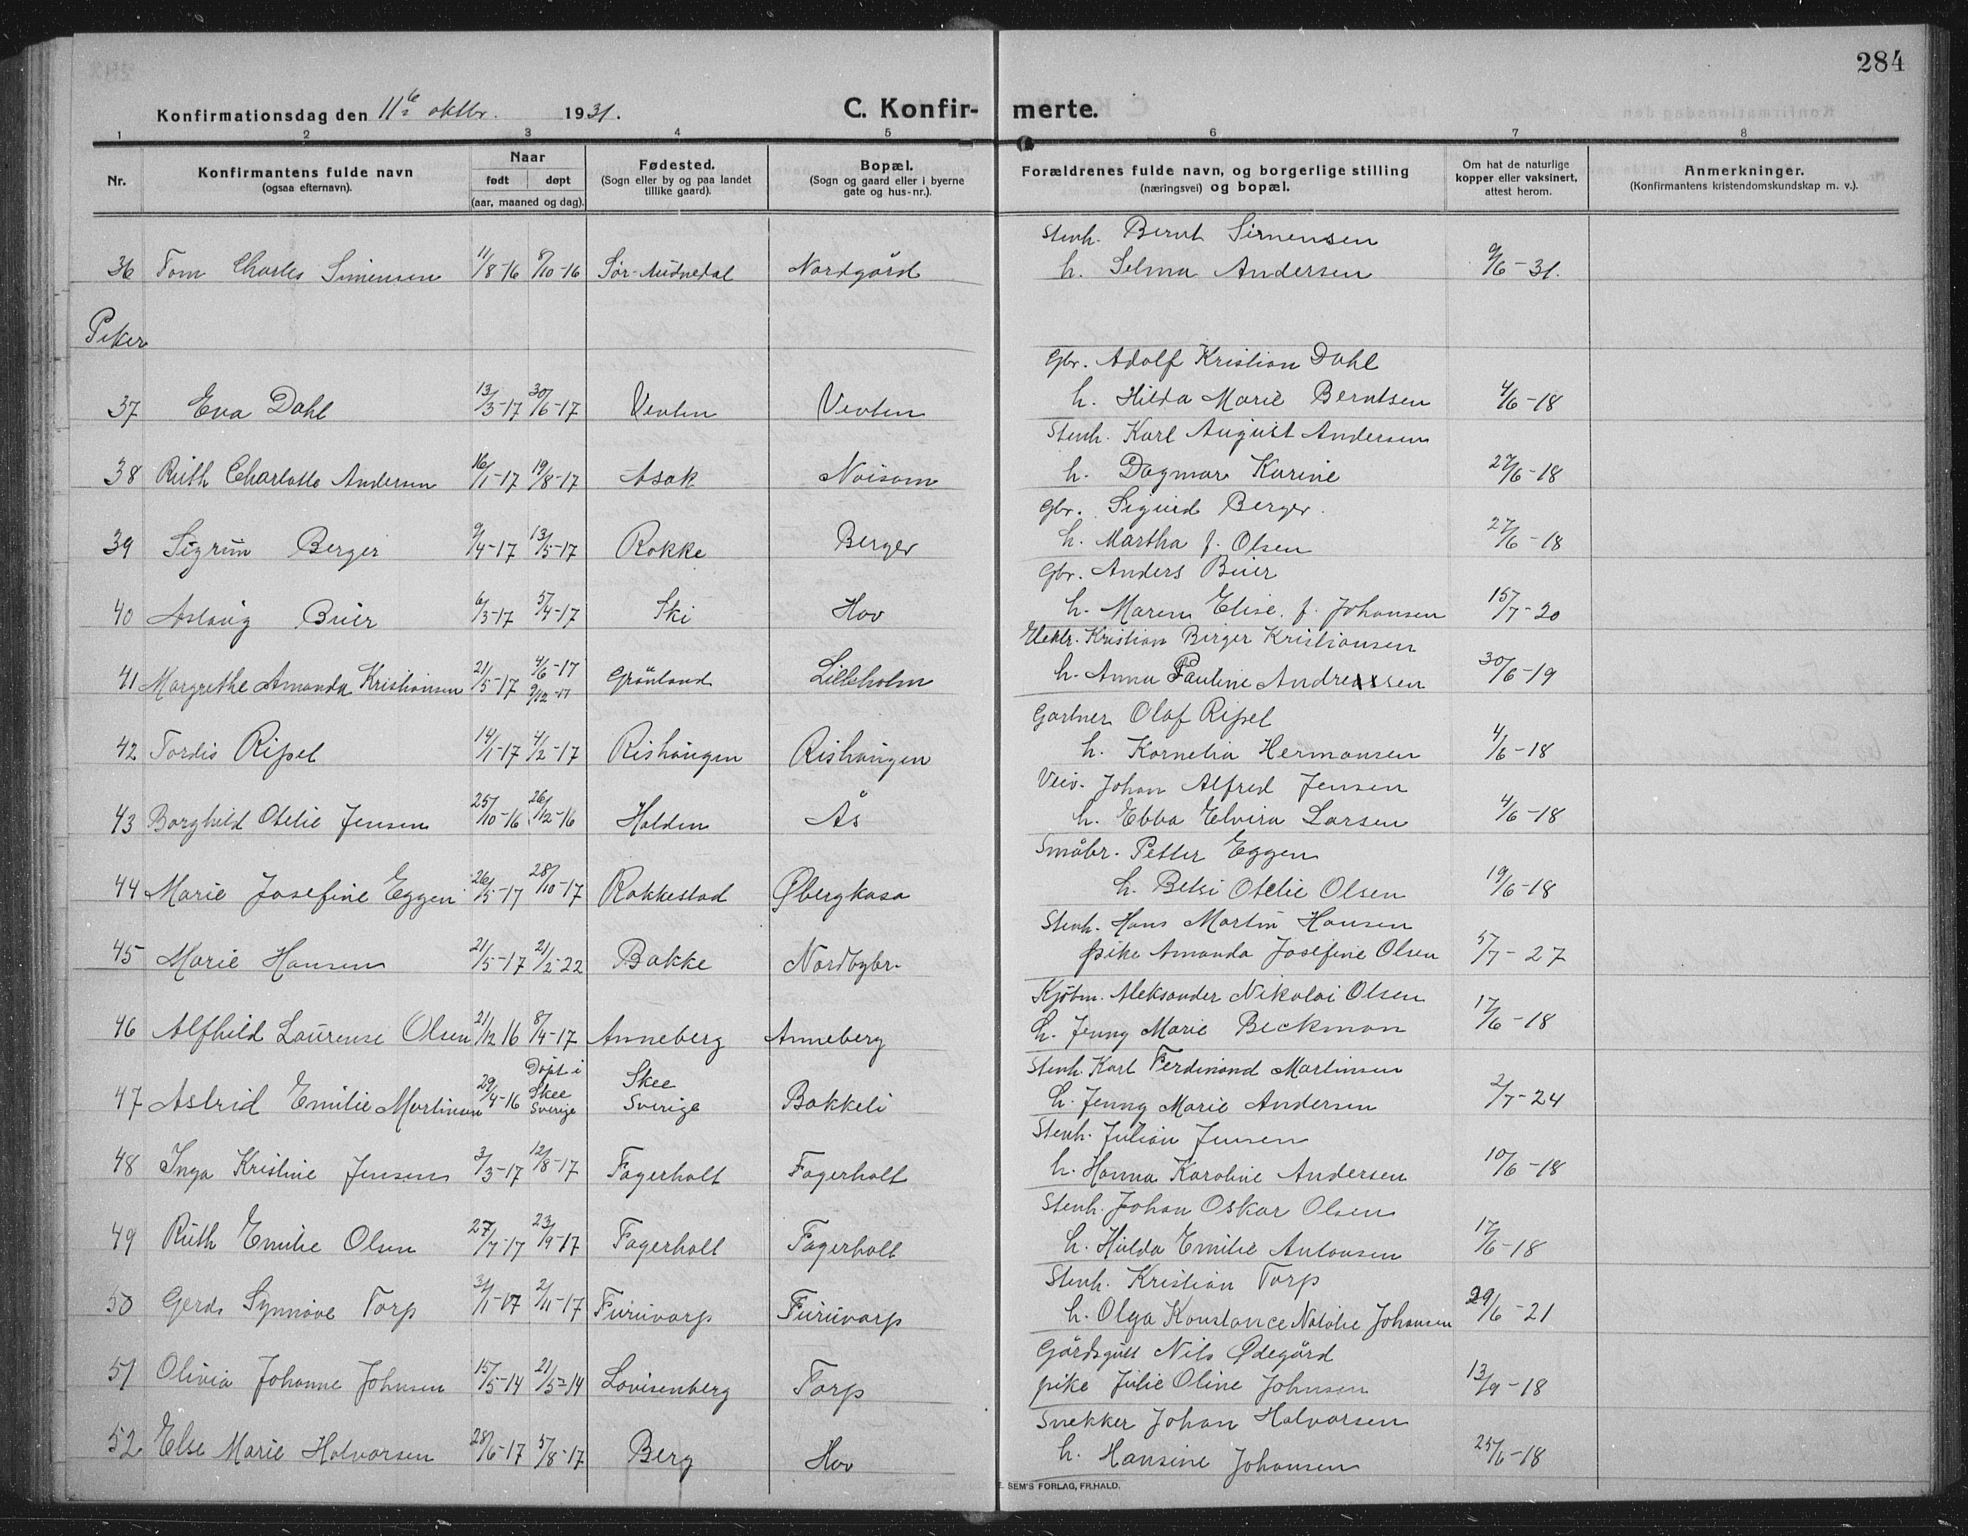 284
Konfirmationsdag den 11te oktbr. 1931. C. Konfir- merte.
1 2 3 4 5 6 7 8
Nr. Konfirmantens fulde navn (ogsaa efternavn). Naar født døpt (aar, maaned og dag). Fødested. (Sogn eller by og paa landet tillike gaard). Bopæl. (Sogn og gaard eller i byerne gate og hus-nr.). Forældrenes fulde navn, og borgerlige stilling (næringsvei) og bopæl. Om hat de naturlige kopper eller vaksinert, attest herom. Anmerkninger. (Konfirmantens kristendomskundskap m. v.).
Stenh. Bernt Simensen
36 Tom Charles Simensen 11/8-16 8/10-16 Sør-Audnedal Nordgård h. Selma Andersen 9/6-31.
Piker
Gbr. Adolf Kristian Dahl
37 Eva Dahl 13/3-17 30/6-17 Vevlen Vevlen h. Hilda Marie Berntsen 4/6-18
Stenh. Karl August Andersen
38 Ruth Charlotte Andersen 16/1-17 19/8-17 Asak Noisom h. Dagmar Karine 27/6-18
Gbr. Sigurd Berger.
39 Sigrun Berger 9/4-17 13/5-17 Rokke Berger h. Martha f. Olsen 27/6-18
Gbr. Anders Buer
40 Aslaug Buer 6/3-17 5/4-17 Ski Hov h. Maren Elise. f. Johansen 15/7-20
Elektr. Kristian Birger Kristiansen
41 Margrethe Amanda Kristiansen 21/5-17 4/6-17 9/12-17 Grønland Lilleholm h. Anna Pauline Andreassen 30/6-19
Gartner Olaf Ripel
42 Tordis Ripel 14/1-17 4/2-17 Rishaugen Rishaugen h. Kornelia Hermansen 4/6-18
Veiv. Johan Alfred Jensen
43 Borghild Otelie Jensen 25/10-16 26/12-16 Halden Ås h. Ebba Elvira Larsen 4/6-18
Småbr. Petter Eggen
44 Marie Josefine Eggen 26/5-17 28/10-17 Rakkestad Øbergkasa h. Betsi Otelie Olsen 19/6-18
Stenh. Hans Martin Hansen
45 Marie Hansen 21/5-17 21/2-22 Bakke Nordbybr. pike Amanda Josefine Olsen 5/7-27
Kjøbm. Aleksander Nikolai Olsen
46 Alfhild Laurense Olsen 21/12 16 8/4-17 Anneberg Anneberg h. Jenny Marie Beckman 17/6-18
Stenh. Karl Ferdinand Martinsen
47 Astrid Emilie Martinsen 29/4-16 Døpt i Skee Sverige Skee Sverige Bakkeli h. Jenny Marie Andersen 2/7-24
Stenh. Julian Jensen
48 Inga Kristine Jensen 3/3-17 12/8-17 Fagerholt Fagerholt h. Hanna Karoline Andersen 10/6-18
Stenh. Johan Oskar Olsen
49 Ruth Emilie Olsen 27/7-17 23/9-17 Fagerholt Fagerholt h. Hulda Emilie Antonsen 17/6-18
Stenh. Kristian Torp
50 Gerds Synnøve Torp 31/1-17 2/11-17 Furuvarp Furuvarp h. Olga Konstance Natalie Johansen 29/6-21
Gårdsgutt Nils Ødegård
51 Olivia Johanne Johnsen 15/5-14 21/5-14 Lovisenberg Torp pike Julie Oline Johnsen 13/9-18
Snekker Johan Halvorsen
52 Else Marie Halvorsen 28/6-17 5/8-17 Berg Hov h. Hansine Johansen 25/6-18
E. SEM'S FORLAG, FR.HALD.